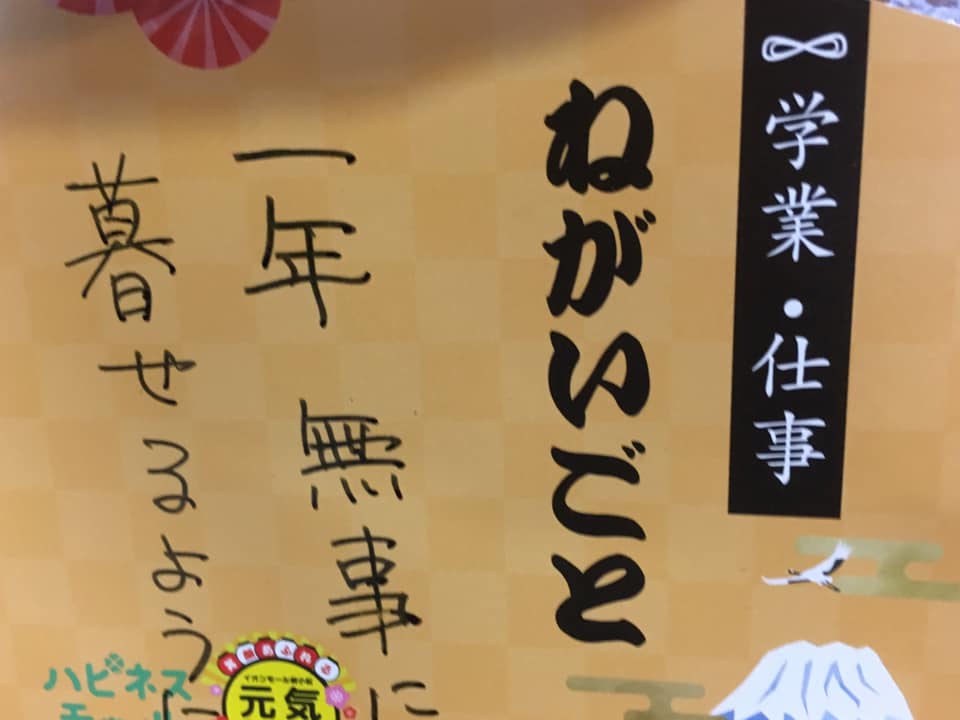 学業・仕事
ねがいごと
一年 無事に
暮せるように
ハピネス
イオンモール
元気